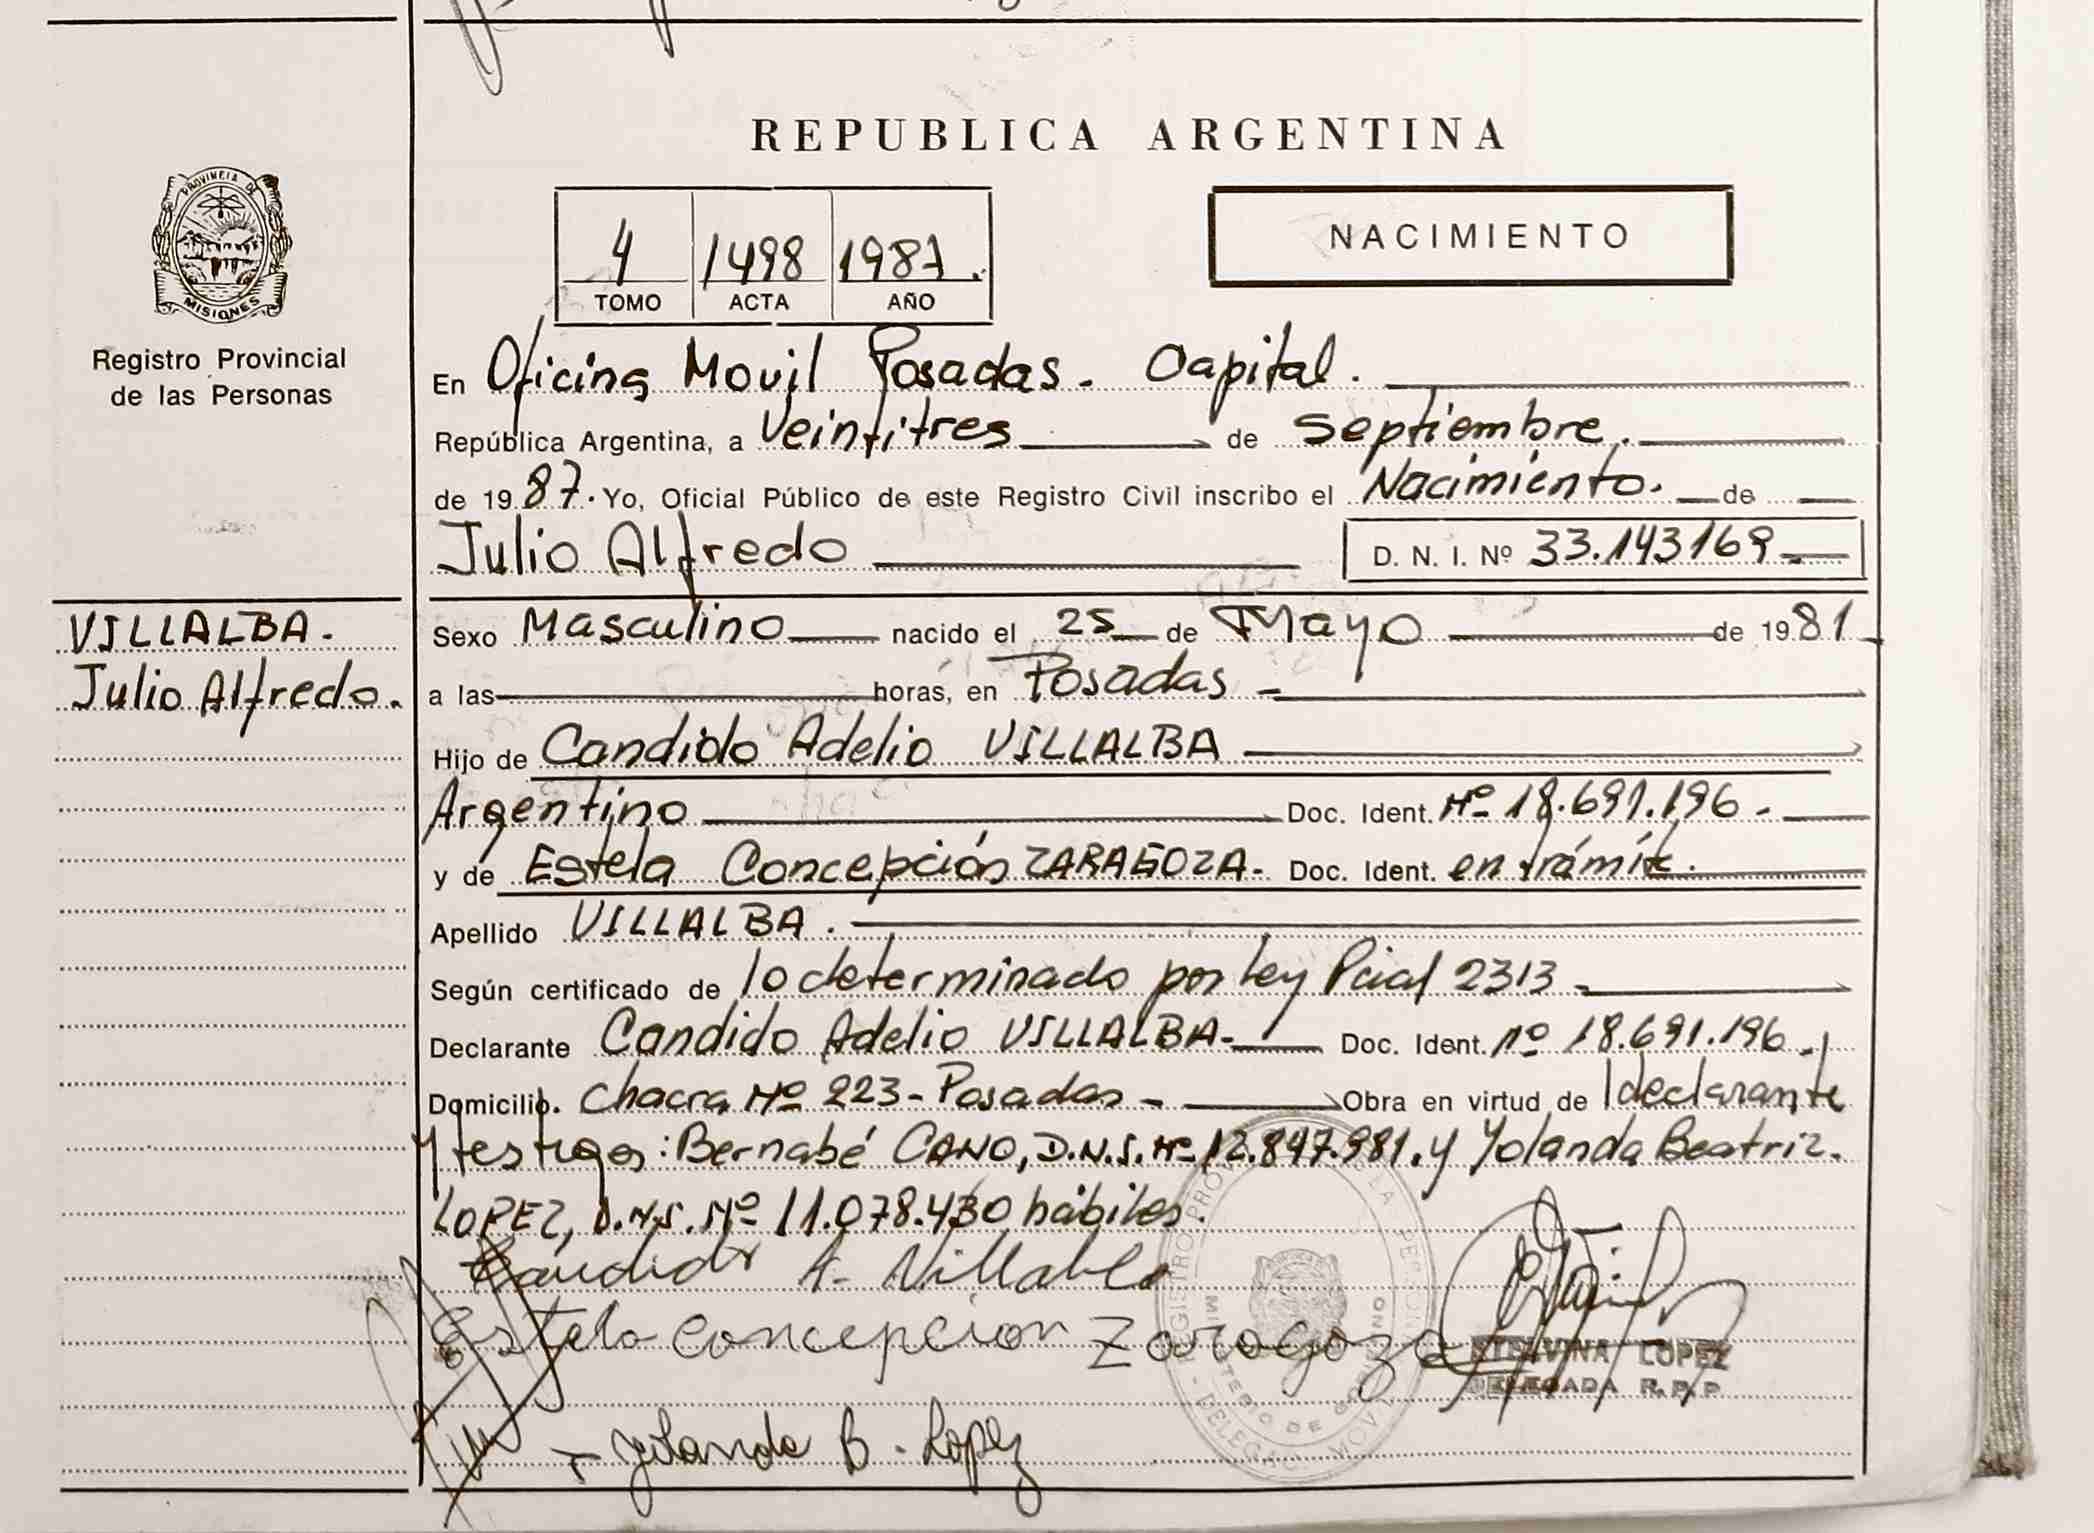 REPUBLICA ARGENTINA
PROVINCIA DE MISIONES
Registro Provincial
de las Personas
4 1498 1987.
TOMO ACTA AÑO
NACIMIENTO
En Oficina Movil Posadas. Capital.
República Argentina, a Veintitres de Septiembre.
de 1987. Yo, Oficial Público de este Registro Civil inscribo el Nacimiento. de
Julio Alfredo D. N. I. Nº 33.143169
VILLALBA.
Julio Alfredo.
Sexo Masculino nacido el 25 de Mayo de 1981
a las horas, en Posadas
Hijo de Candido Adelio VILLALBA
Argentino Doc. Ident. Nº 18.691.196
y de Estela Concepción ZARAGOZA. Doc. Ident. en trámite.
Apellido VILLALBA.
Según certificado de lo determinado por Ley Pcial 2313
Declarante Candido Adelio VILLALBA Doc. Ident. nº 18.691.196
Domicilio. Chacra Nº 223 - Posadas Obra en virtud de declarante
y testigos: Bernabé CANO, D.N.I. Nº 12.847.981. y Yolanda Beatriz.
LOPEZ, D.N.I. Nº 11.078.430 hábiles.
Candido A. Villalba
Estela Concepcion Zaragoza
ETELVINA LOPEZ
DELEGADA R.P.P
Yolanda B. Lopez